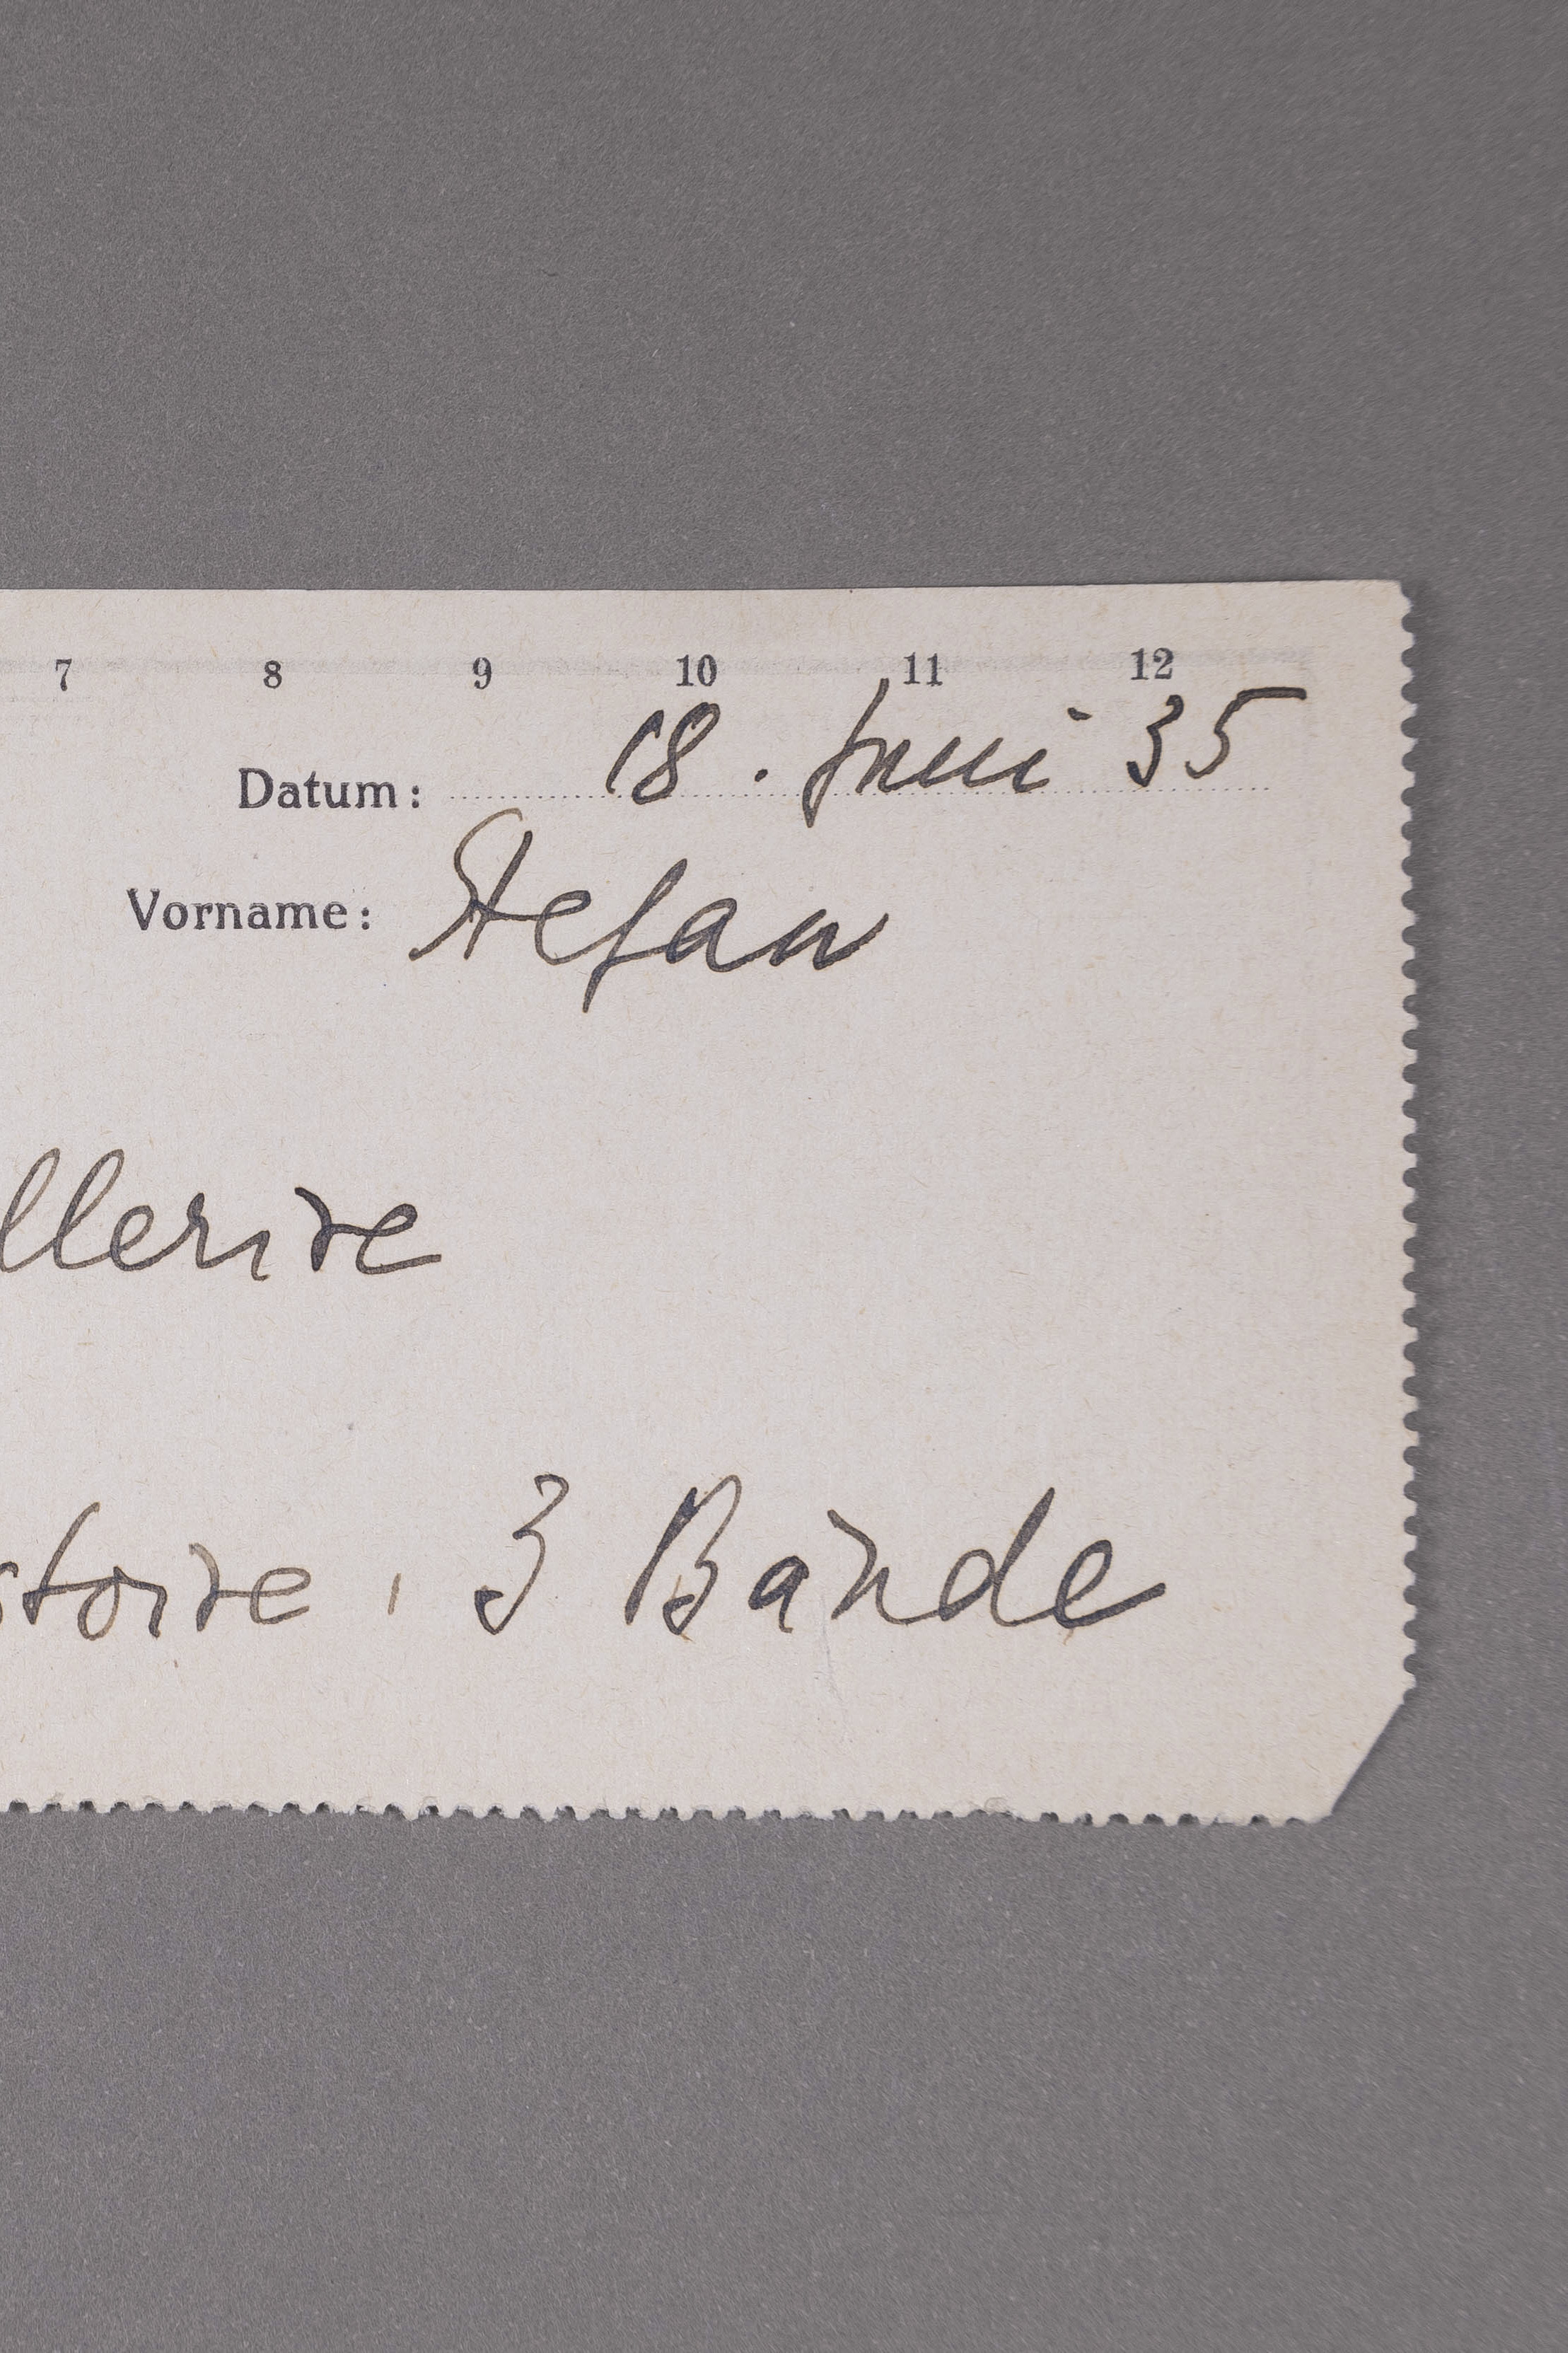 7 8 9 10 11 12
Datum: 18. Juni 35
Vorname: Stefan
llerire
stoire, 3 Bände